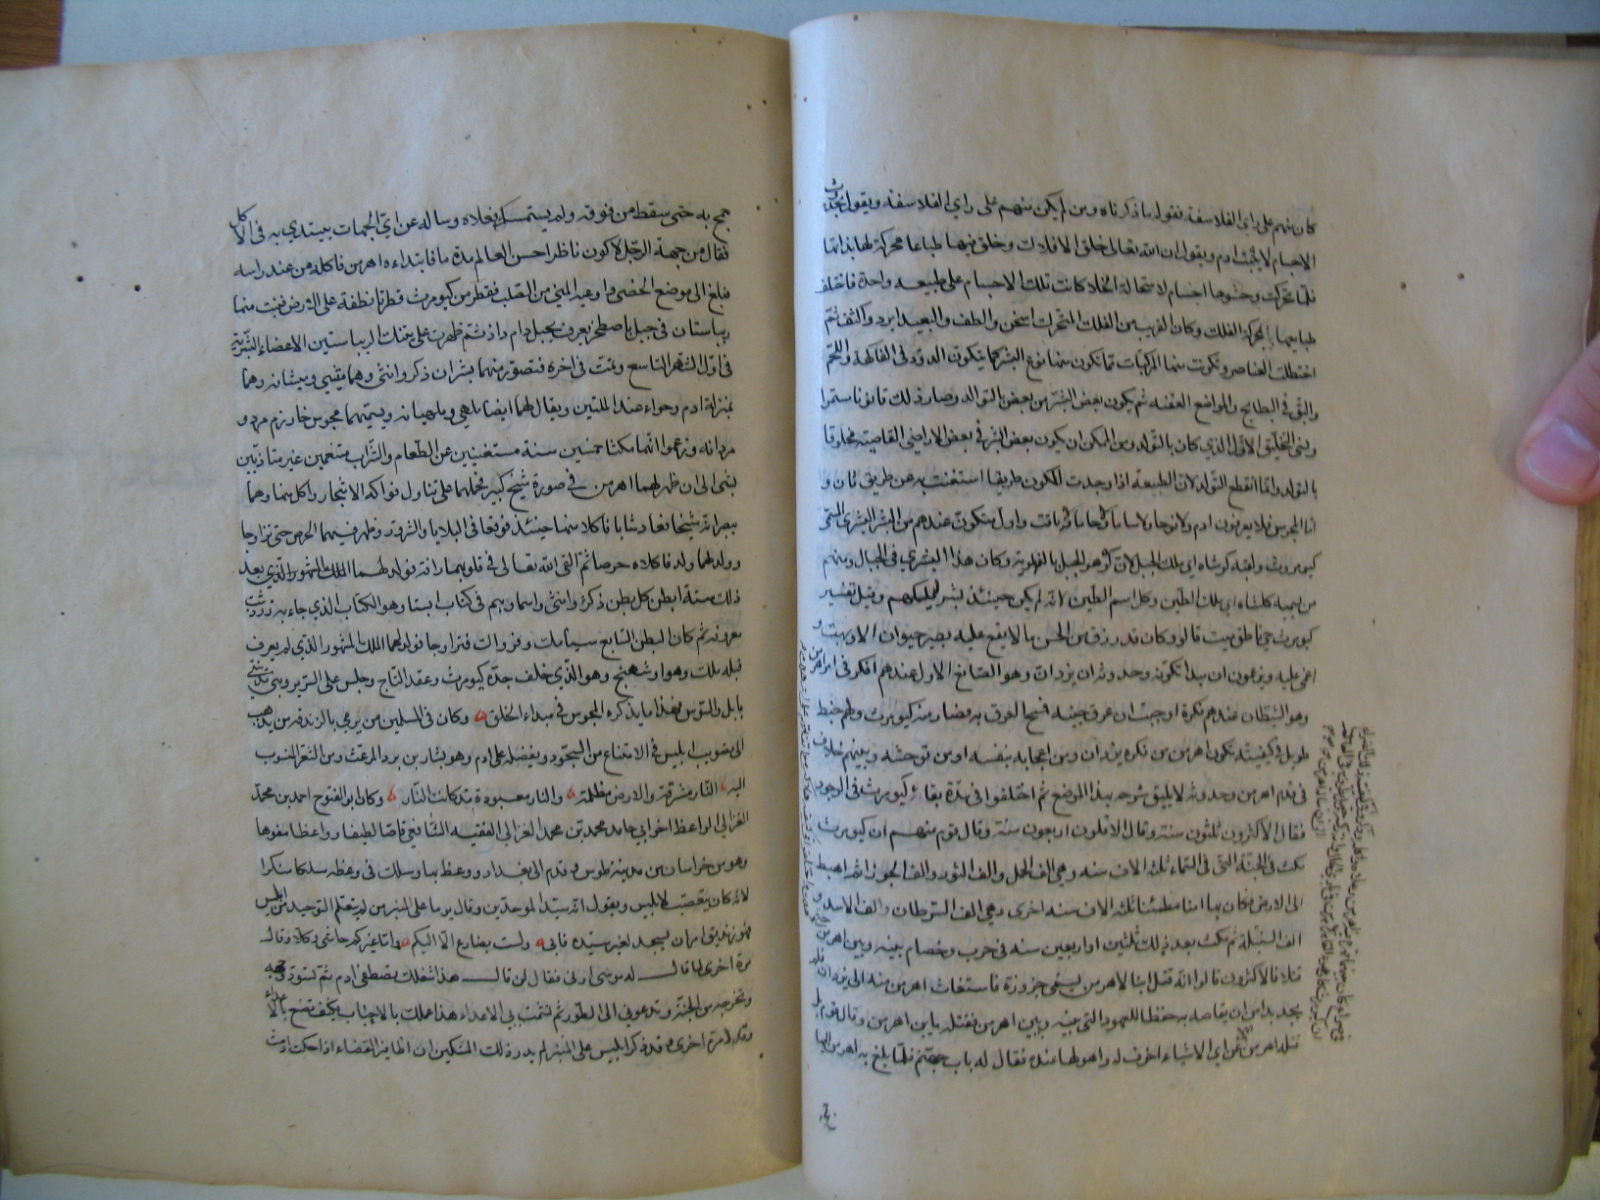 كان منهم على راى الفلاسفة نقوله ما ذكرناه ومن لم يكن منهم على راى الفلاسفة ويقول بحدوث
الاجسام لا يثبت ادم ويقول ان الله تعالى خلق الافلاك وخلق فيها طباعا محركة لها بذاتها
فلما تحركت وحشوها اجسام لاستحالة الخلاء كانت تلك الاجسام على طبيعة واحدة فاختلف
طبايعها بالحركة الفلك وكان القريب من الفلك المتحرك اسخن والطف والبعيد ابرد واكثف ثم
اختلطت العناصر وتكونت منها المركبات فما تكون منها نوع البشر كما يتكون الدود فى الفاكهة واللحم
والبق فى البطايح والمواضع العفنة ثم يكون بعض البشر من بعض بالتوالد وصار ذلك قانونا مستمرا
ونسى التخليق الاول الذى كان بالتولد ومن الممكن ان يكون بعض البشر فى بعض الاراضى القاصية مخلوقا
بالتولد وانما انقطع التولد لان الطبيعة اذا وجدت للكون طريقا استغنت به عن طريق ثان و
اما المجوس فلا يعرفون ادم ولا نوحا ولا ساما ولا حاما ولا يافث واول متكون عندهم من البشر البشرى المسمى
كيومرث ولقبه كوشاه اى ملك الجبل لان كو هو الجبل بالفهلوية وكان هذا البشرى فى الجبال ومنهم
من يسميه كلشاه اى ملك الطين وكل اسم الطين لانه لم يكن حينئذ بشر ليملكهم وقيل تفسير
كيومرث حى ناطق ميت قالوا وكان قد رزق من الحسن ما لا يقع عليه بصر حيوان الا وبهت و
اغمى عليه ويزعمون ان مبدأ تكونه وحدوثه ان يزدان وهو الصانع الاول عندهم افكر فى امر اهرمن
وهو الشيطان عندهم فكرة اوجبت ان عرق جبينه فمسح العرق به فصار منه كيومرث ولهم خبط
طويل فى كيفية تكون اهرمن من فكره يزدان ومن اعجابه بنفسه او من توحشه وبينهم خلاف
فى قدم اهرمن وحدوثه لا يليق شرحه بهذا الموضع ثم اختلفوا فى مدة بقاء كيومرث فى الوجود
فقال الاكثرون ثلثون سنة وقال الاقلون اربعون سنة وقال قوم منهم ان كيومرث
مكث فى الجنة التى فى السماء ثلثة الاف سنه وهى الف الحمل والف الثور والف الجوزا ثم اهبط
الى الارض فكان بها امنا مطمئنا ثلثة الاف سنه اخرى وهى الف السرطان والف الاسد و
الف السنبلة ثم مكث بعد ذلك ثلثين او اربعين سنه فى حرب وخصام بينه وبين اهرمن
فقالوا الاكثرون قالوا انه قتل ابنا لاهرمن يسمى جزورة فاستغاث اهرمن منه الى يزدان فلم
يجد بدا من ان يقاصه به حفظا للعهود التى بينه وبين اهرمن فقتله بابن اهرمن وقال قوم بل
قتله اهرمن عن اى الاشياء اخوف له واهولها عنده فقال له باب جهنم فلما بلغ به اهرمن اليها
جمح به حتى سقط من فوقه ولم يستمسك فعلاه وساله عن اى الجهات يبتدى به فى الاكل
فقال من جهة الرجل لاكون ناظرا حسن العالم مدة ما فابتداءه اهرمن فاكله من عند راسه
فبلغ الى موضع الخصى واوعية المنى من الصلب فقطر من كيومرث قطرتا نطفة على الارض فنبت منها
ريباستان فى جبل باصطخر يعرف بجبل دام داذ ثم ظهرت على تينك الريباستين الاعضاء البشرية
فى اول الشهر التاسع وتمت فى اخره فتصور منهما بشران ذكر وانثى وهما ميشى وميشانه وهما
بمنزلة ادم وحواء عند المليين ويقال لهما ايضا ملهى وملهيانه ويسميهما مجوس خارزم مرد و
مردانه وزعموا انهما مكثا خمسين سنة مستغنيين عن الطعام والشراب متنعمين غير متاذيين
بشى الى ان ظهر لهما اهرمن فى صورة شيخ كبير فحملهما على تناول فواكه الاشجار واكل منها وهما
يبصرانه شيخا فعاد شابا فاكلا منها حينئذ فوقعا فى البلايا والشرور وظهر فيهما الحرص حتى تزاوجا
وولد لهما ولد فاكلاه حرصا ثم القى الله تعالى فى قلوبهما رافة فولد لهما
ذلك ستة ابطن كل بطن ذكر وانثى واسماوهم فى كتاب ابستا وهو الكتاب الذى جاء به زردشت
معروفه ثم كان البطن السابع سيامك وفرواك فتزاوجا فولد لهما الملك المشهور الذى لم يعرف
قبله ملك وهو اوشهنج وهو الذى خلف جده كيومرث وعقد التاج وجلس على السرير وبنى مدينتى
بابل والسوس فهذا ما يذكره المجوس فى مبداء الخلق وكان فى المسلمين من يرمى بالزندقه من يذهب
الى تصويب ابليس فى الامتناع من السجود ويفضله على ادم وهو بشار بن برد المرعث ومن الشعر المنسوب
اليه النار مشرقة والارض مظلمة والنار معبودة مذ كانت النار وكان ابو الفتوح احمد بن محمد
الغزالى الواعظ اخو ابى حامد محمد بن محمد الغزالى الفقيه الشافعى قاصا لطيفا وواعظا مفوها
وهو من خراسان من مدينة طوس وقدم الى بغداد ووعظ بها وسلك فى وعظه مسلكا منكرا
لانه كان يتعصب لابليس ويقول انه سيد الموحدين وقال يوما على المنبر من لم يتعلم التوحيد من ابليس
فهو زنديق امر ان يسجد لغير سيده فابى ولست بضارع الا اليكم واما غيركم حاشى وكلا وقال
مرة اخرى لما قال له موسى ارنى فقال لن قال هذا شغلك تصطفى ادم ثم تسود وجهه
وتخرجه من الجنة وتدعونى الى الطور ثم تشمت بى الاعداء هذا عملك بالاحباب فكيف تصنع بالاعداء
وقال مرة اخرى وقد ذكر ابليس على المنبر لم يدر ذلك المسكين ان اظافير القضاء اذا حكت ادمت